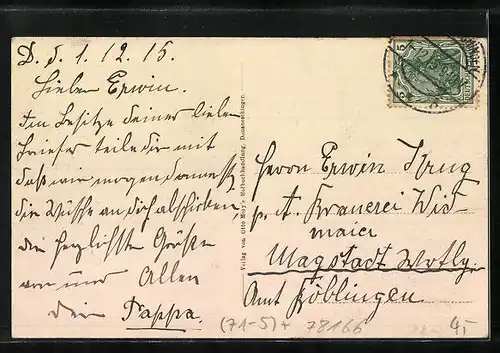 D. d. 1. 12. 15.
Lieber Erwin.
Im Besitze deines lieben
Briefes teile dir mit
daß wir morgen
die Wäsche an dich abschicken,
die herzlichsten Grüße
von uns Allen
Dein Pappa.
Verlag von Otto Mory's Hofbuchhandlung, Donaueschingen.
5
Herrn Erwin Krug
p. A. Brauerei Wid-
maier
Magstadt Wrtbg.
Amt Böblingen
(71-5)+ 78166
4,-